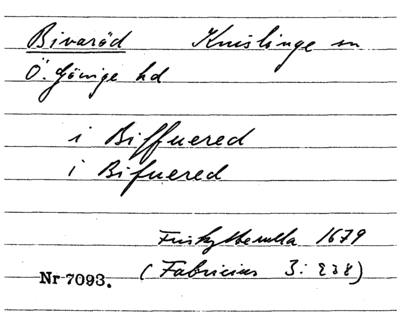 Bivaröd Knislinge sn
Ö. Göinge hd
i Biffuered
i Bifuered
1679
Nr 7093. (Fabricius 3: 238)